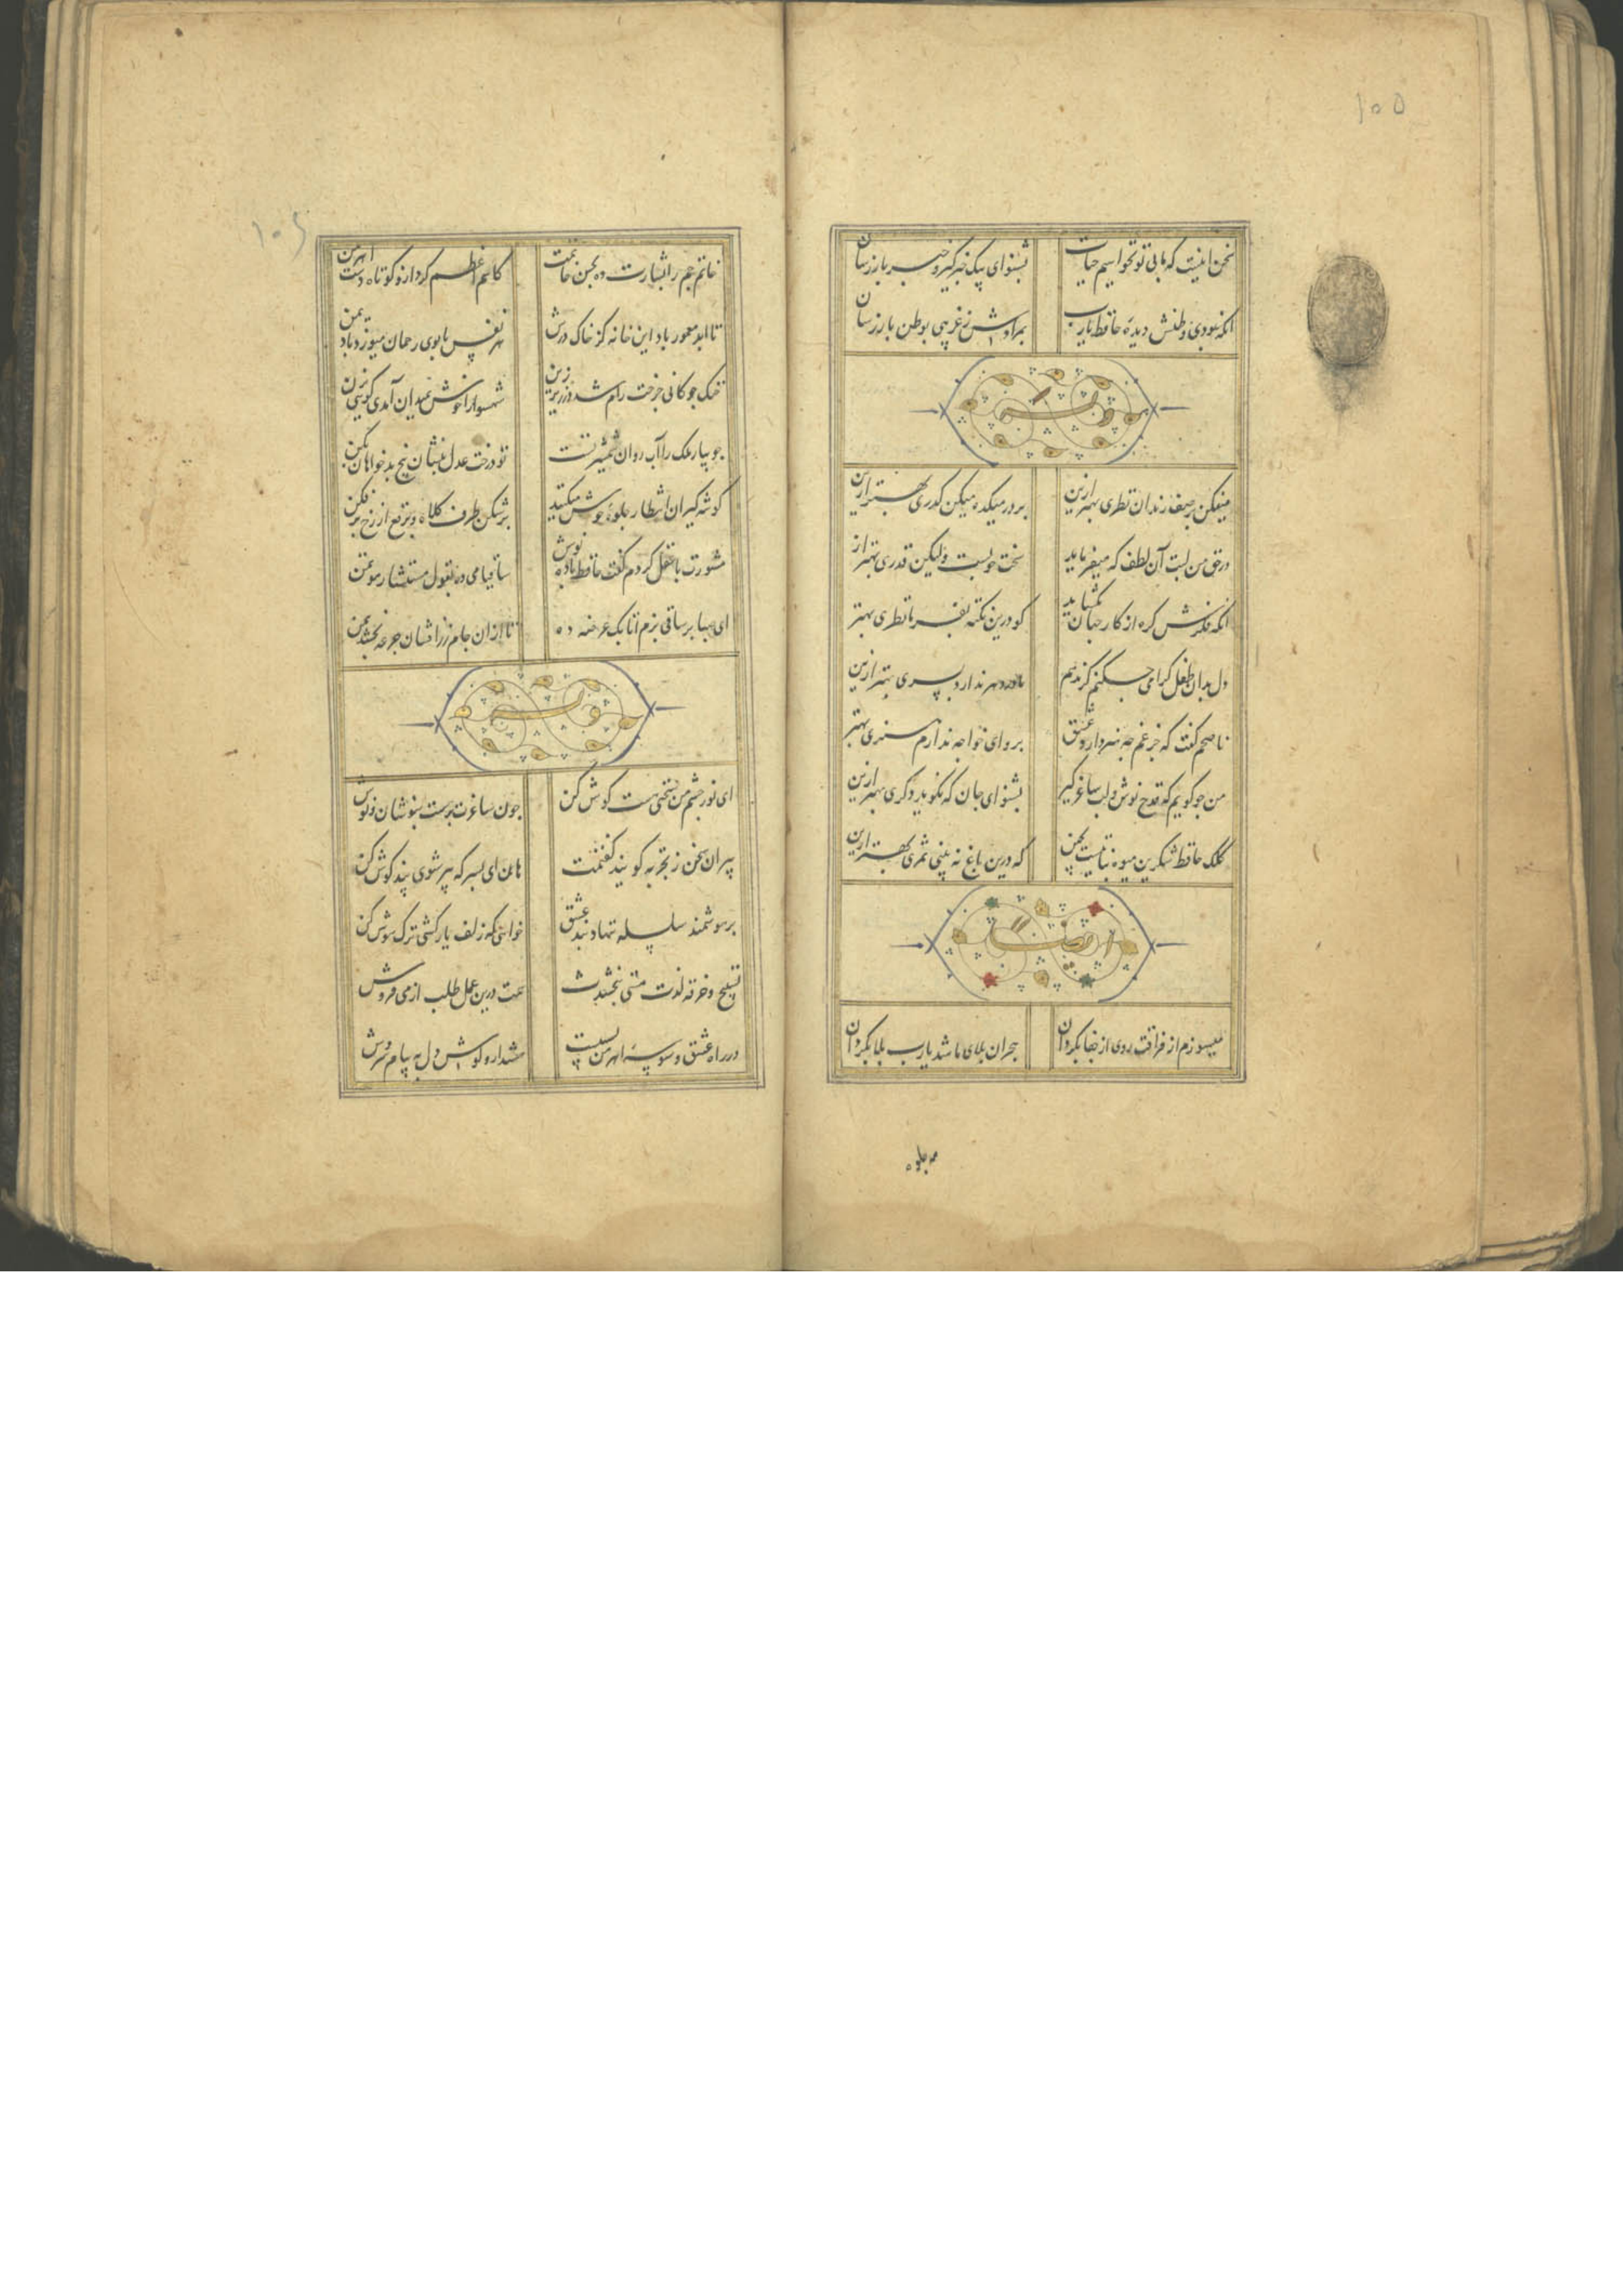 ۱۰۵
سخن اینست که ما بی تو نخواهیم حیات بشنو ای پیک خبرگیر و خبر باز رسان
آنکه بودی وطنش دیده حافظ یارب بمرادش ز غریبی بوطن باز رسان
وله
میفکن بر صف رندان نظری بهتر ازین بر در میکده میکن گذری بهتر ازین
در حق من لبت آن لطف که میفرماید سخت خوبست ولیکن قدری بهتر از
آنکه فکرش گره از کار جهان بگشاید کو درین نکته بفرما نظری بهتر
دل بدان طفل گرامی چکنم گر ندهم مادر دهر ندارد پسری بهتر ازین
ناصحم گفت که جز غم چه هنر دارد عشق برو ای خواجه ندارم هنری بهتر
من چو گویم که قدح نوش و لب ساغر گیر بشنو ای جان که نگوید دگری بهتر ازین
کلک حافظ شکرین میوه نباتیست بچین که درین باغ نه بینی ثمری بهتر ازین
ایضا
میسوزم از فراقت روی از جفا بگردان هجران بلای ما شد یارب بلا بگردان
مه جلوه
۱۰۶
خاتم جم را بشارت ده بحسن خاتمت کاسم اعظم کرد ازو کوتاه دست اهرمن
تا ابد معمور باد این خانه کز خاک درش هر نفس با بوی رحمان میوزد باد یمن
خنگ چوگانی چرخت رام شد در زیر زین شهسوارا خوش بمیدان آمدی گویی بزن
جویبار ملک را آب روان شمشیر تست تو درخت عدل بنشان بیخ بدخواهان بکن
گوشه گیران انتظار جلوه خوش میکشند برشکن طرف کلاه و برقع از رخ برفکن
مشورت با عقل کردم گفت حافظ باده نوش ساقیا می ده بقول مستشار موتمن
ای صبا بر ساقی بزم اتابک عرضه ده تا ازان جام زرافشان جرعه بخشد بمن
وله
ای نور چشم من سخنی هست گوش کن چون ساغرت پرست بنوشان و نوش
پیران سخن ز تجربه گویند گفتمت هان ای پسر که پیر شوی پند گوش کن
بر هوشمند سلسله ننهاد بند عشق خواهی که زلف یار کشی ترک هوش کن
تسبیح و خرقه لذت مستی نبخشدت همت درین عمل طلب از می فروش
در راه عشق وسوسه اهرمن بسیست هشدار و گوش دل به پیام سروش